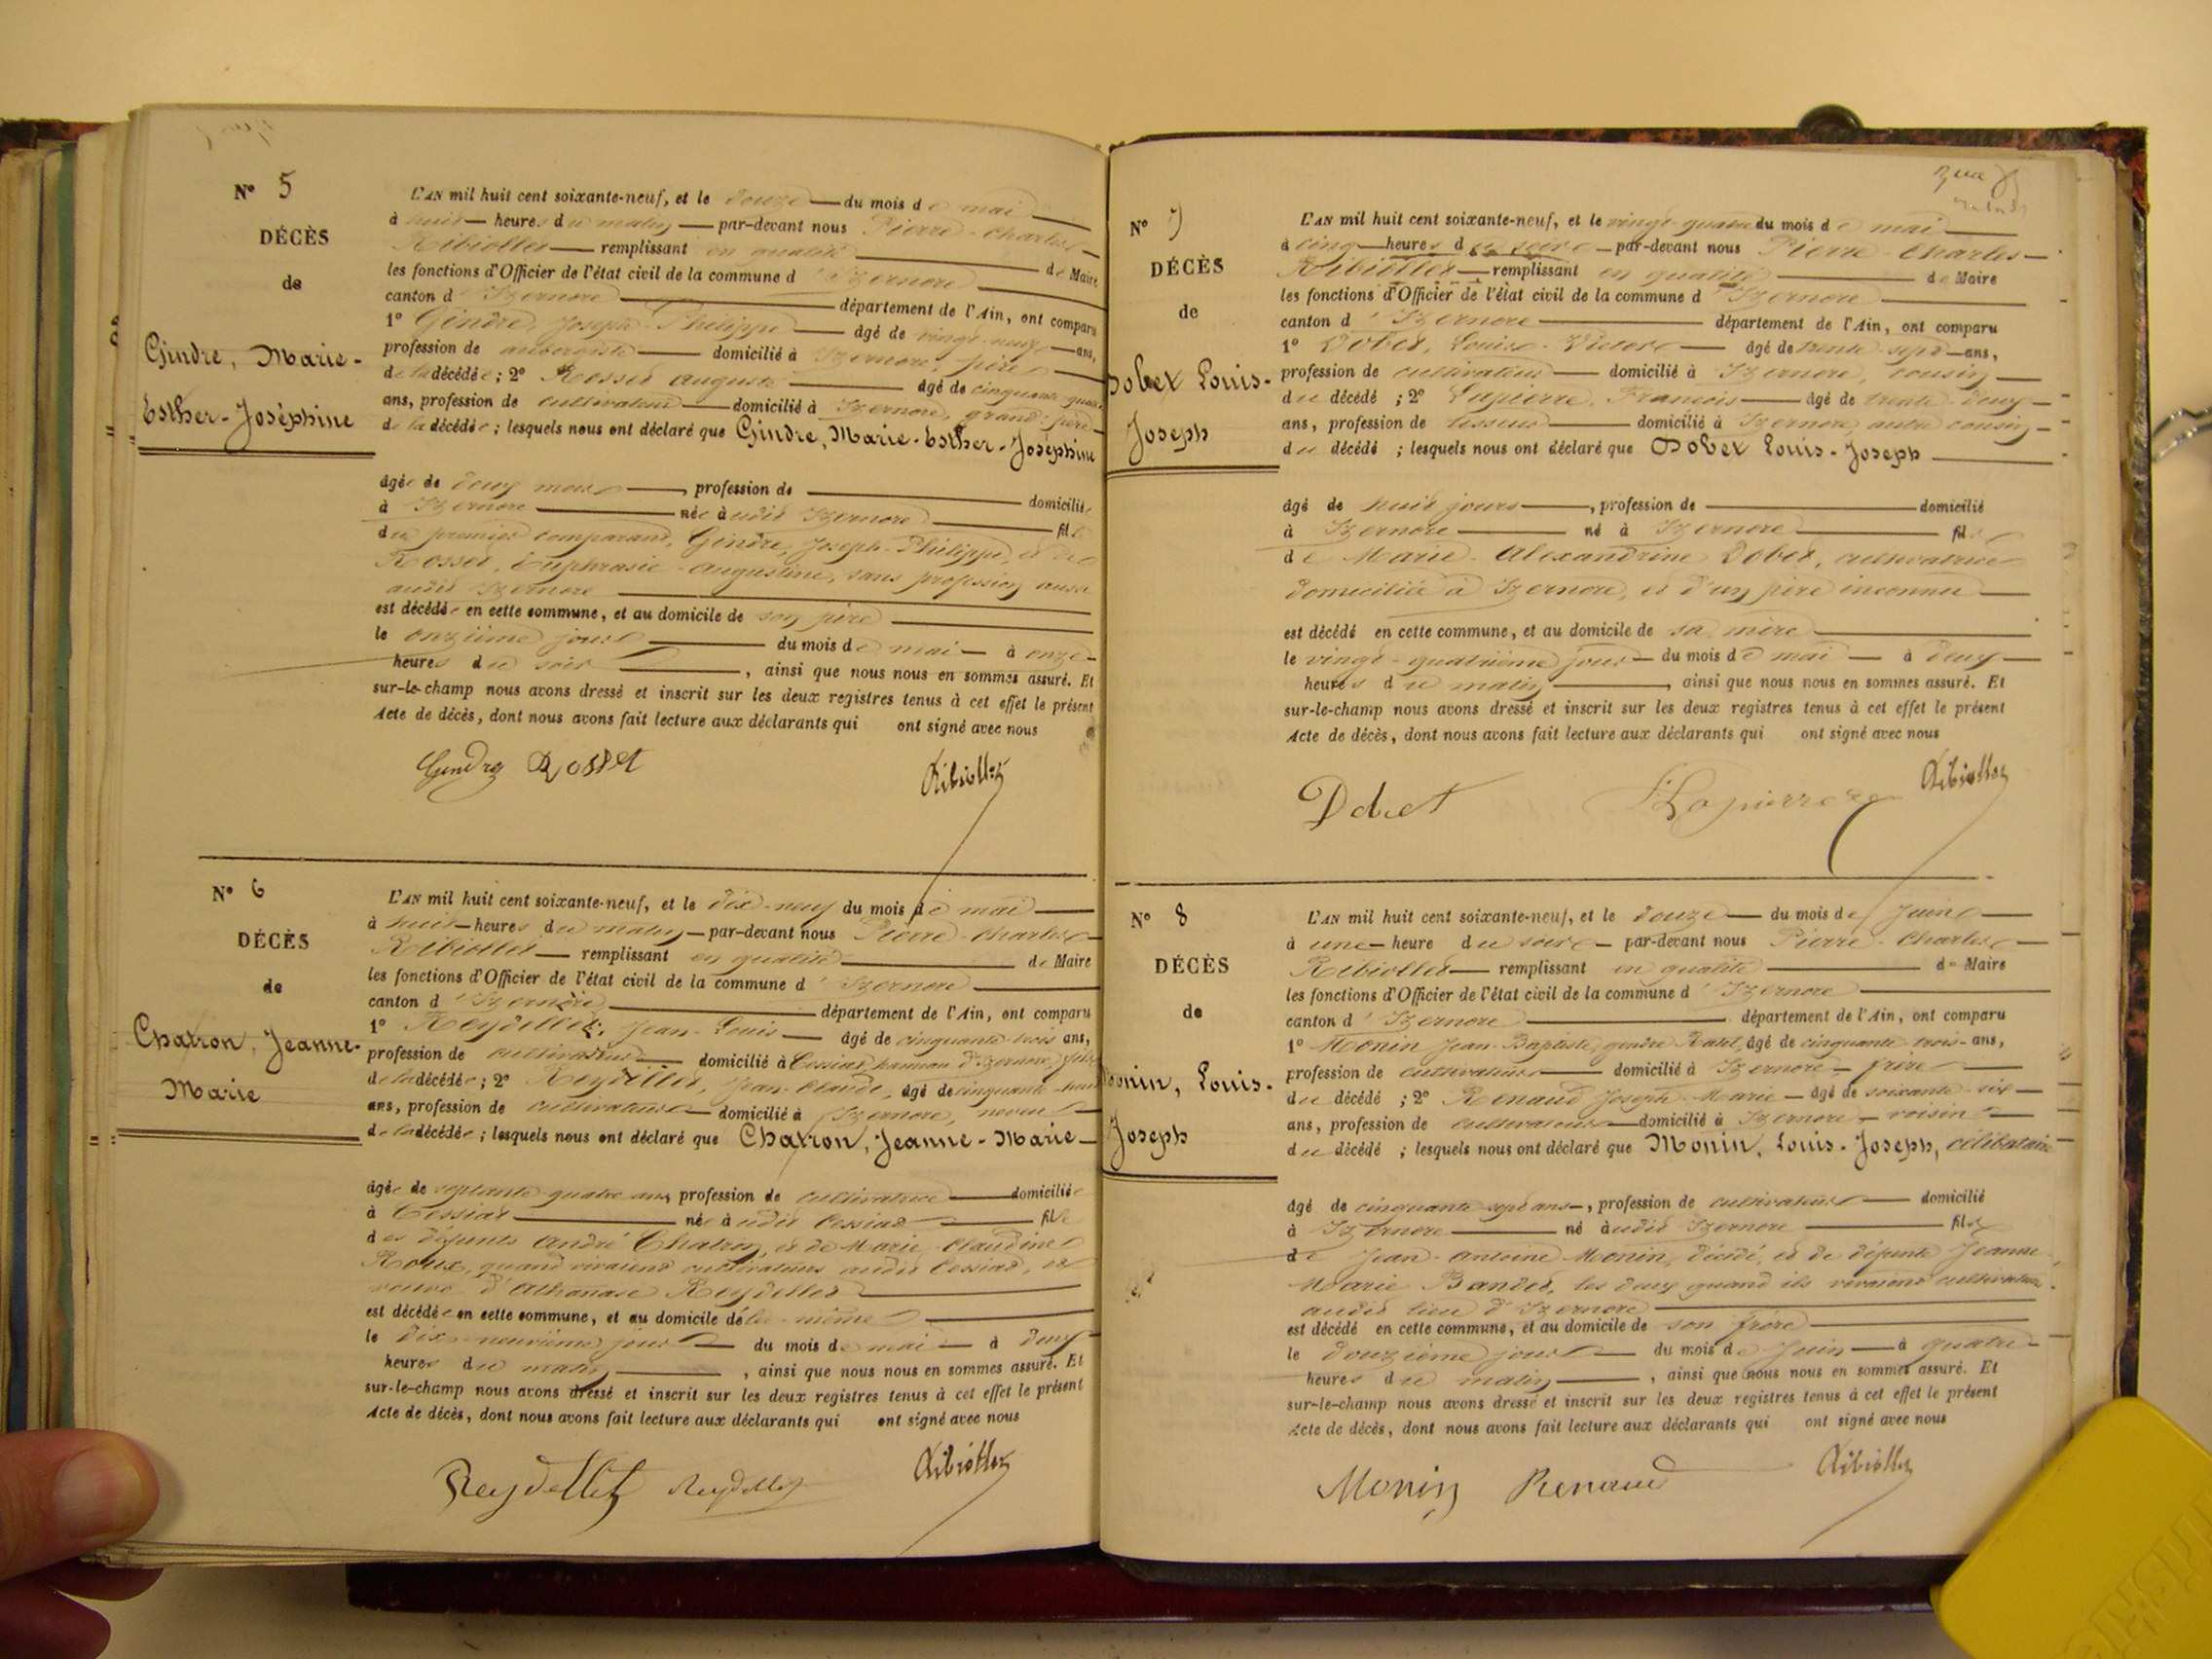 N° 5
DÉCÈS
de
Gindre, Marie-
Esther-Joséphine
L'AN mil huit cent soixante-neuf, et le douze du mois de mai
à huit heures du matin par-devant nous Pierre-Charles
Ribiollet remplissant en qualité de Maire
les fonctions d'Officier de l'état civil de la commune d'Izernore
canton d'Izernore département de l'Ain, ont comparu
1° Gindre, Joseph-Philippe âgé de vingt-neuf ans,
profession de aubergiste domicilié à Izernore, père
de la décédée ; 2° Rosset Auguste âgé de cinquante quatre
ans, profession de cultivateur domicilié à Izernore, grand-père
de la décédée ; lesquels nous ont déclaré que Gindre, Marie-Esther-Joséphine
âgée de deux mois, profession de domiciliée
à Izernore née audit Izernore fille
du premier comparant, Gindre, Joseph-Philippe, et de
Rosset, Euphrasie-Augustine, sans profession aussi
audit Izernore
est décédée en cette commune, et au domicile de son père
le onzième jour du mois de mai à onze
heures du soir, ainsi que nous nous en sommes assuré. Et
sur-le-champ nous avons dressé et inscrit sur les deux registres tenus à cet effet le présent
Acte de décès, dont nous avons fait lecture aux déclarants qui ont signé avec nous
Gindre Rosset Ribiollet
N° 6
DÉCÈS
de
Chatron, Jeanne-
Marie
L'AN mil huit cent soixante-neuf, et le dix-neuf du mois de mai
à huit heures du matin par-devant nous Pierre-Charles
Ribiollet remplissant en qualité de Maire
les fonctions d'Officier de l'état civil de la commune d'Izernore
canton d'Izernore département de l'Ain, ont comparu
1° Reydellet, Jean-Louis âgé de cinquante trois ans,
profession de cultivateur domicilié à Cessiat, hameau d'Izernore, fils
de la décédée ; 2° Reydellet, Jean-Claude, âgé de cinquante-huit
ans, profession de cultivateur domicilié à Izernore, neveu
de la décédée ; lesquels nous ont déclaré que Chatron, Jeanne-Marie
âgée de septante quatre ans, profession de cultivatrice domiciliée
à Cessiat née audit Cessiat fille
des défunts André Chatron, et de Marie-Claudine
Roux, quand vivaient cultivateurs audit Cessiat, et
veuve d'Athanase Reydellet
est décédée en cette commune, et au domicile d'elle-même
le dix-neuvième jour du mois de mai à deux
heures du matin, ainsi que nous nous en sommes assuré. Et
sur-le-champ nous avons dressé et inscrit sur les deux registres tenus à cet effet le présent
Acte de décès, dont nous avons fait lecture aux déclarants qui ont signé avec nous
Reydellet Reydellet Ribiollet
N° 7
DÉCÈS
de
Dobet Louis-
Joseph
L'AN mil huit cent soixante-neuf, et le vingt-quatre du mois de mai
à cinq heures du soir par-devant nous Pierre-Charles
Ribiollet remplissant en qualité de Maire
les fonctions d'Officier de l'état civil de la commune d'Izernore
canton d'Izernore département de l'Ain, ont comparu
1° Dobet, Louis-Victor âgé de trente-sept ans,
profession de cultivateur domicilié à Izernore, cousin
du décédé ; 2° Lapierre, François âgé de trente-deux
ans, profession de tisseur domicilié à Izernore, autre cousin
du décédé ; lesquels nous ont déclaré que Dobet Louis-Joseph
âgé de huit jours, profession de domicilié
à Izernore né à Izernore fils
de Marie-Alexandrine Dobet, cultivatrice
domiciliée à Izernore, et d'un père inconnu
est décédé en cette commune, et au domicile de sa mère
le vingt-quatrième jour du mois de mai à deux
heures du matin, ainsi que nous nous en sommes assuré. Et
sur-le-champ nous avons dressé et inscrit sur les deux registres tenus à cet effet le présent
Acte de décès, dont nous avons fait lecture aux déclarants qui ont signé avec nous
Dobet Lapierre Ribiollet
N° 8
DÉCÈS
de
Monin, Louis-
Joseph
L'AN mil huit cent soixante-neuf, et le douze du mois de Juin
à une heure du soir par-devant nous Pierre-Charles
Ribiollet remplissant en qualité de Maire
les fonctions d'Officier de l'état civil de la commune d'Izernore
canton d'Izernore département de l'Ain, ont comparu
1° Monin Jean-Baptiste, gendre âgé de cinquante-trois ans,
profession de cultivateur domicilié à Izernore frère
du décédé ; 2° Renaud Joseph-Marie âgé de soixante-six
ans, profession de cultivateur domicilié à Izernore voisin
du décédé ; lesquels nous ont déclaré que Monin, Louis-Joseph, célibataire
âgé de cinquante sept ans, profession de cultivateur domicilié
à Izernore né audit Izernore fils
de Jean-Antoine Monin, décédé, et de défunte Jeanne-
Marie Bandet, les deux quand ils vivaient cultivateurs
audit lieu d'Izernore
est décédé en cette commune, et au domicile de son frère
le douzième jour du mois de Juin à quatre
heures du matin, ainsi que nous nous en sommes assuré. Et
sur-le-champ nous avons dressé et inscrit sur les deux registres tenus à cet effet le présent
Acte de décès, dont nous avons fait lecture aux déclarants qui ont signé avec nous
Monin Renaud Ribiollet